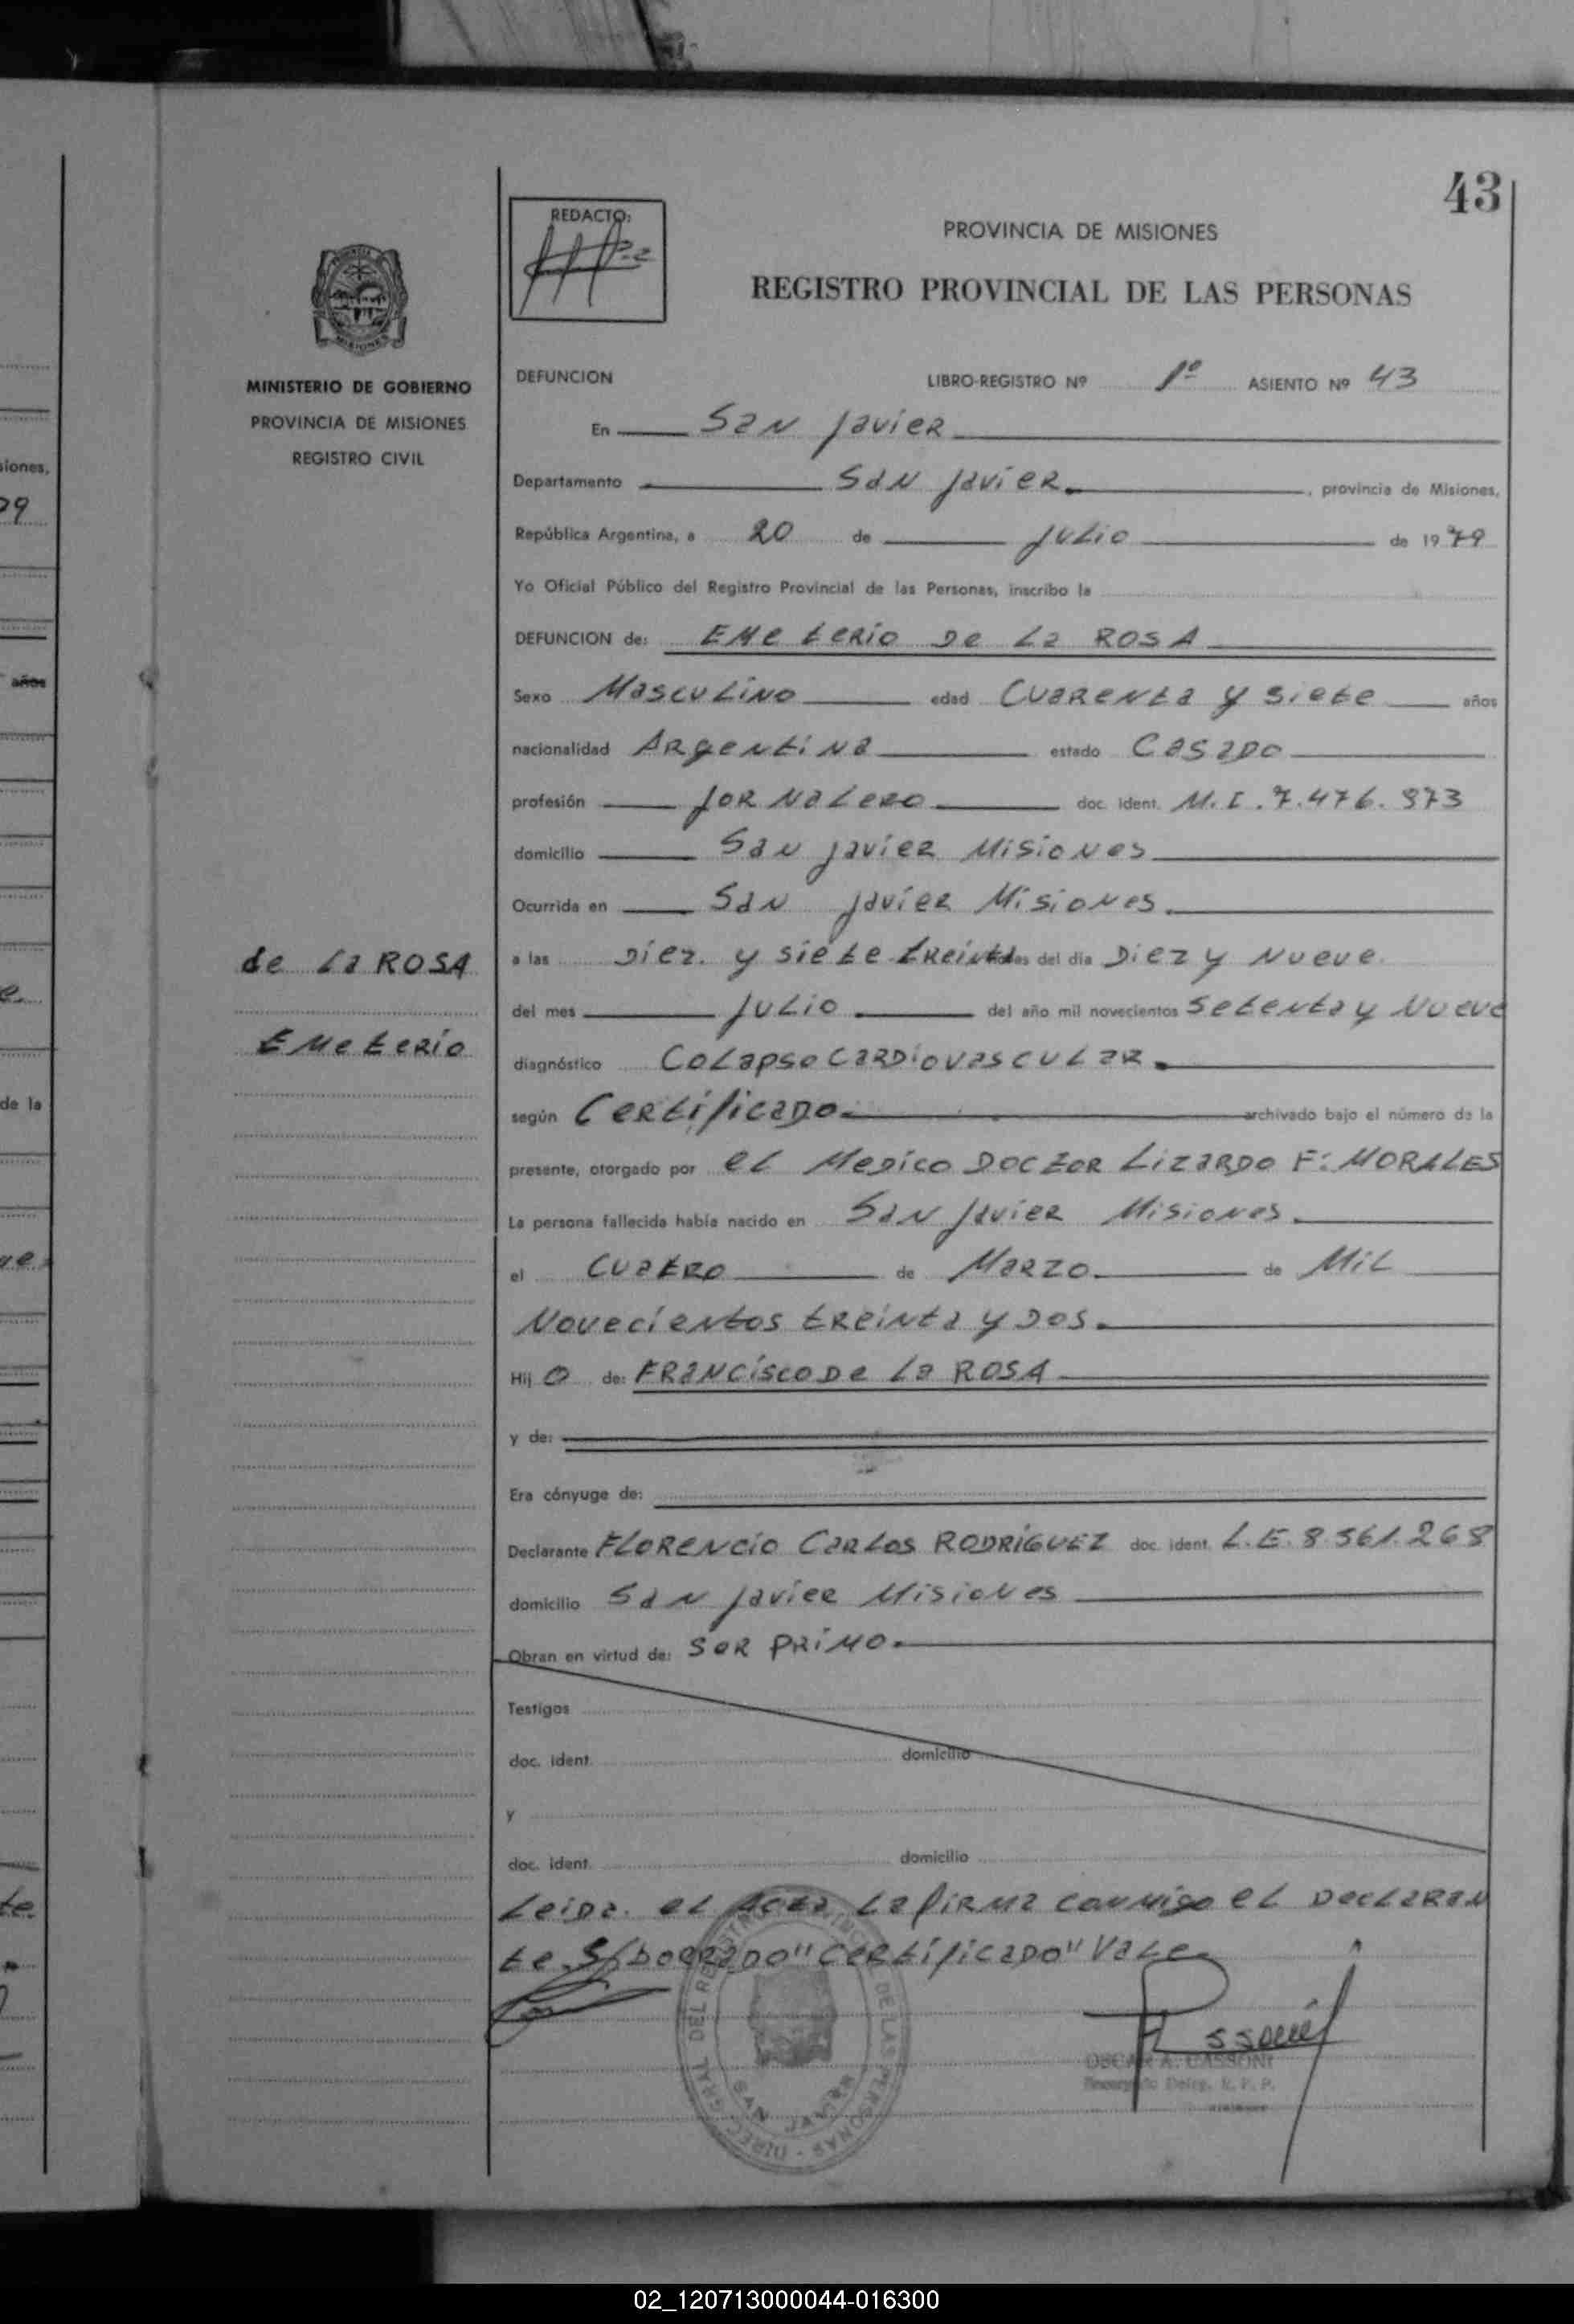 43
REDACTO:
PROVINCIA DE MISIONES
REGISTRO PROVINCIAL DE LAS PERSONAS
MINISTERIO DE GOBIERNO
PROVINCIA DE MISIONES
REGISTRO CIVIL
DEFUNCION LIBRO-REGISTRO Nº 1º ASIENTO Nº 43
En San Javier
Departamento San Javier, provincia de Misiones,
República Argentina, a 20 de Julio de 1979
Yo Oficial Público del Registro Provincial de las Personas, inscribo la
DEFUNCION de: EMeterio De La ROSA
Sexo Masculino edad Cuarenta y siete años
nacionalidad Argentina estado Casado
profesión Jornalero doc. ident. M.I. 7.476.973
domicilio San Javier Misiones
Ocurrida en San Javier Misiones
de La ROSA
EMeterio
a las Diez y siete treinta del día Diez y Nueve
del mes Julio del año mil novecientos Setenta y Nueve
diagnóstico Colapso Cardiovascular.
según Certificado. archivado bajo el número de la
presente, otorgado por el Medico Doctor Lizardo F: MORALES
La persona fallecida había nacido en San Javier Misiones.
el Cuatro de Marzo. de Mil
Novecientos treinta y Dos.
Hijo de: FRANCisco De La ROSA
y de:
Era cónyuge de:
Declarante FLORENCIO Carlos RODRIGUEZ doc. ident. L.E. 8.561.268
domicilio San Javier Misiones
Obran en virtud de: Ser primo.
Testigos
doc. ident. domicilio
y
doc. ident. domicilio
Leida el Acta La firma conmigo el Declaran
te. S/borrado "Certificado" Vale
DIREC. GRAL. DEL REGISTRO PROVINCIAL DE LAS PERSONAS
SAN JAVIER
OSCAR A. CASSONI
R. P. P.
iones,
79
años
de la
te
02_120713000044-016300